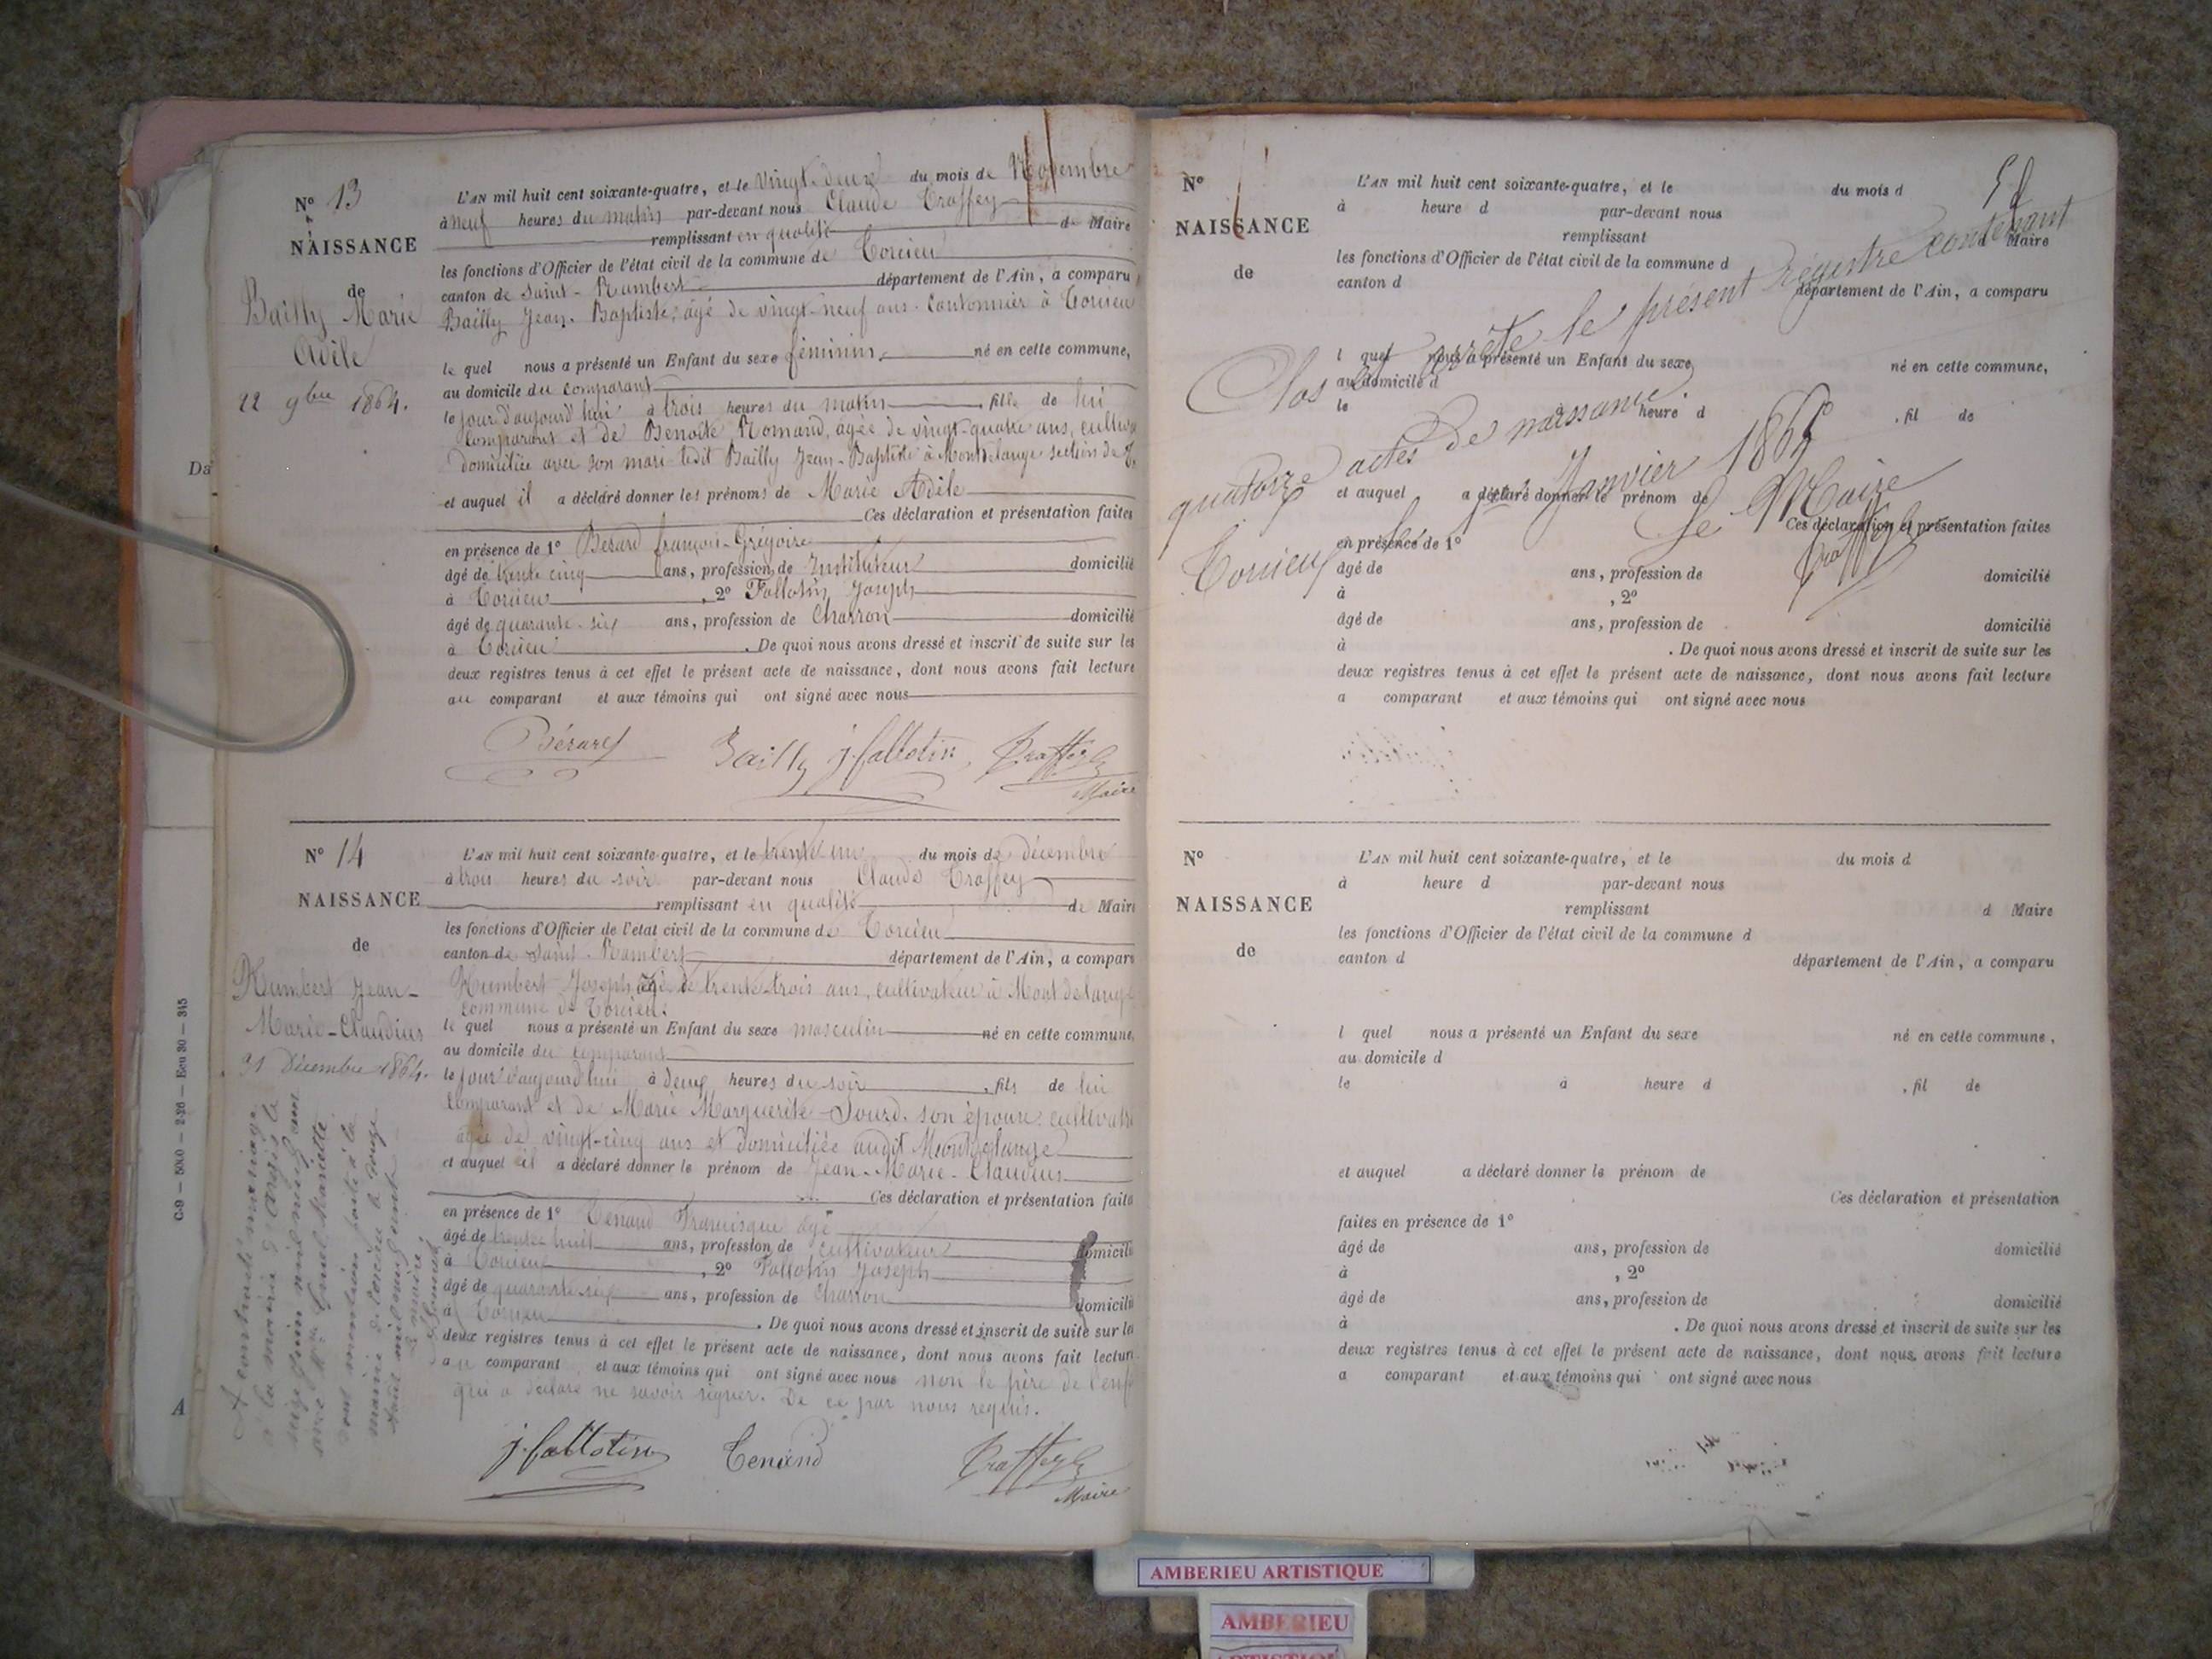 N° 13
NAISSANCE
de
Bailly Marie
Adèle
22 9bre 1864.
L'AN mil huit cent soixante-quatre, et le Vingt-deux du mois de Novembre
à neuf heures du matin par-devant nous Claude Traffey
remplissant en qualité de Maire
les fonctions d'Officier de l'état civil de la commune de Torcieu
canton de Saint-Rambert département de l'Ain, a comparu
Bailly Jean-Baptiste, âgé de vingt-neuf ans, cantonnier à Torcieu
le quel nous a présenté un Enfant du sexe féminin né en cette commune,
au domicile du comparant
le jour d'aujourd'hui à trois heures du matin, fille de lui
comparant et de Benoîte Romand, âgée de vingt-quatre ans,
domiciliée avec son mari ledit Bailly Jean-Baptiste à Montdelange section de
et auquel il a déclaré donner les prénoms de Marie Adèle
Ces déclaration et présentation faites
en présence de 1° Bérard françois-Grégoire
âgé de trente cinq ans, profession de Instituteur domicilié
à Torcieu, 2° Fallotin Joseph
âgé de quarante-six ans, profession de Charron domicilié
à Torcieu. De quoi nous avons dressé et inscrit de suite sur les
deux registres tenus à cet effet le présent acte de naissance, dont nous avons fait lecture
au comparant et aux témoins qui ont signé avec nous
Bérard Bailly j. fallotin Traffey
Maire
N° 14
NAISSANCE
de
Humbert Jean-
Marie-Claudius
31 Décembre 1864.
L'AN mil huit cent soixante-quatre, et le trente un du mois de décembre
à trois heures du soir par-devant nous Claude Traffey
remplissant en qualité de Maire
les fonctions d'Officier de l'état civil de la commune de Torcieu
canton de Saint Rambert département de l'Ain, a comparu
Humbert Joseph âgé de trente-trois ans, cultivateur à Montdelange
commune de Torcieu.
le quel nous a présenté un Enfant du sexe masculin né en cette commune,
au domicile du comparant
le jour d'aujourd'hui à deux heures du soir, fils de lui
comparant et de Marie Marguerite Sourd, son épouse,
âgée de vingt-cinq ans et domiciliée audit Montdelange
et auquel il a déclaré donner le prénom de Jean-Marie-Claudius
Ces déclaration et présentation faites
en présence de 1° Tenand Francisque âgé
âgé de trente huit ans, profession de cultivateur domicilié
à Torcieu, 2° Fallotin Joseph
âgé de quarante-six ans, profession de Charron domicilié
à Torcieu. De quoi nous avons dressé et inscrit de suite sur les
deux registres tenus à cet effet le présent acte de naissance, dont nous avons fait lecture
au comparant et aux témoins qui ont signé avec nous non le père de
qui a déclaré ne savoir signer. De ce par nous requis.
j. fallotin Tenand Traffey
Maire
A contracté mariage
à la mairie
Da
C-9 — 5000 — 2-26 — Eeu 30 — 315
A
N°
NAISSANCE
de
L'AN mil huit cent soixante-quatre, et le du mois d
à heure d par-devant nous
remplissant d Maire
les fonctions d'Officier de l'état civil de la commune d
canton d département de l'Ain, a comparu
l quel nous a présenté un Enfant du sexe né en cette commune,
au domicile d
le heure d , fil de
et auquel a déclaré donner le prénom de
Ces déclaration et présentation faites
en présence de 1°
âgé de ans, profession de domicilié
à , 2°
âgé de ans, profession de domicilié
à . De quoi nous avons dressé et inscrit de suite sur les
deux registres tenus à cet effet le présent acte de naissance, dont nous avons fait lecture
a comparant et aux témoins qui ont signé avec nous
Clos et arrêté le présent régistre contenant
quatorze actes de naissance.
Torcieu le 1er Janvier 1865
Le Maire
Traffey
N°
NAISSANCE
de
L'AN mil huit cent soixante-quatre, et le du mois d
à heure d par-devant nous
remplissant d Maire
les fonctions d'Officier de l'état civil de la commune d
canton d département de l'Ain, a comparu
l quel nous a présenté un Enfant du sexe né en cette commune,
au domicile d
le à heure d , fil de
et auquel a déclaré donner le prénom de
Ces déclaration et présentation
faites en présence de 1°
âgé de ans, profession de domicilié
à , 2°
âgé de ans, profession de domicilié
à . De quoi nous avons dressé et inscrit de suite sur les
deux registres tenus à cet effet le présent acte de naissance, dont nous avons fait lecture
a comparant et aux témoins qui ont signé avec nous
AMBERIEU ARTISTIQUE
AMBERIEU
ARTISTIQUE